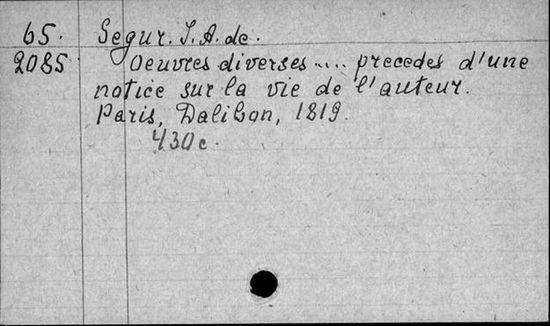 65. Segur. J. A. de.
2085. Oeuvres diverses .... precedes d'une
notice sur la vie de l'auteur.
Paris, Dalibon, 1819.
430 c.